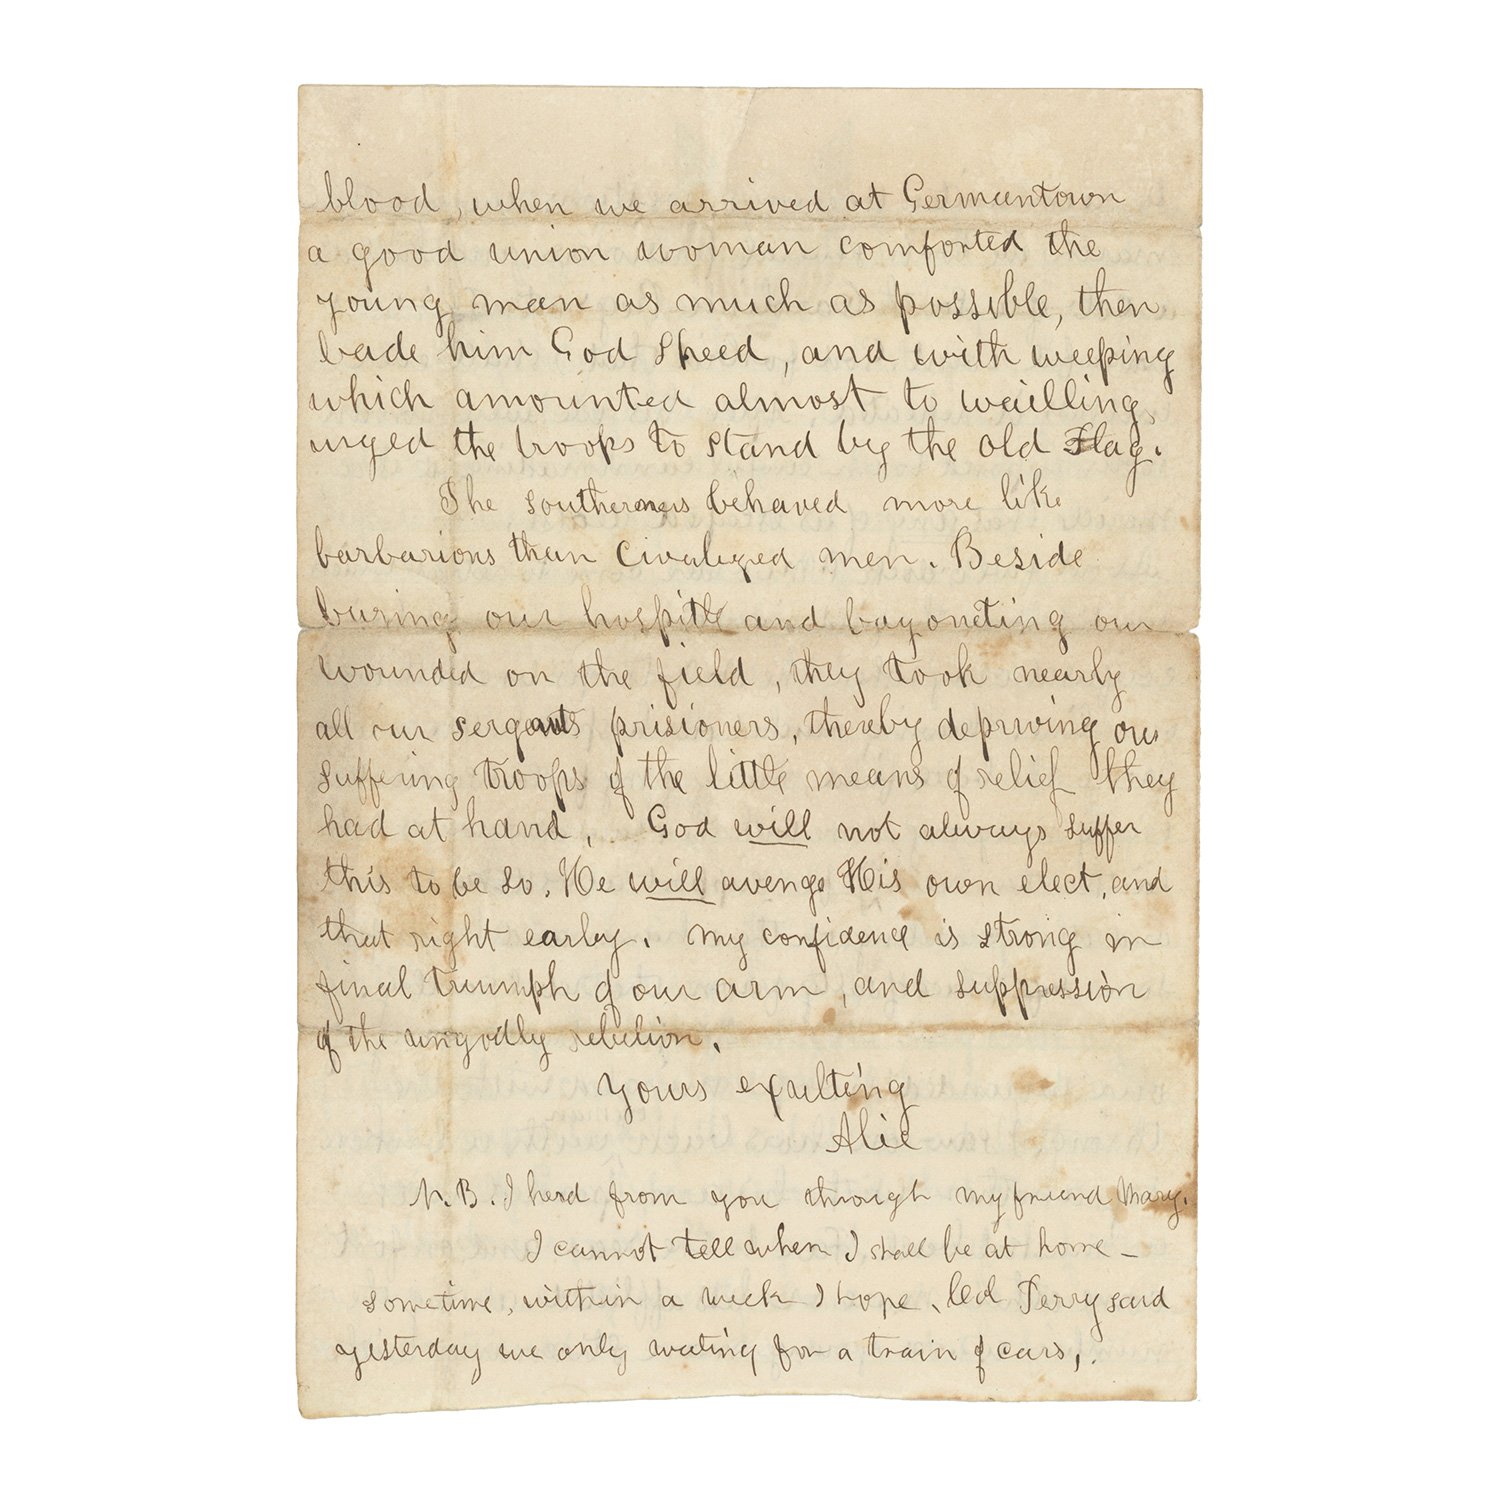 blood, when we arrived at Germantown
a good union woman comforted the
young man as much as possible, then
bade him God Speed, and with weeping
which amounted almost to wailling,
urged the troops to stand by the old Flag.
The southerners behaved more like
barbarions than civalized men. Beside
buring our hospitle and bayoneting our
wounded on the field, they took nearly
all our sergants prisioners, thereby depriving our
suffering troops of the little means of relief they
had at hand. God will not always suffer
this to be so. He will avenge His own elect, and
that right earley. My confidence is strong in
final triumph of our arm, and suppression
of the ungodly rebelion.
Yours exulting
Alic
N.B. I herd from you through my friend Mary.
I cannot tell when I shall be at home –
sometime, within a week I hope. Col Perry said
yesterday we only wating for a train of cars,.